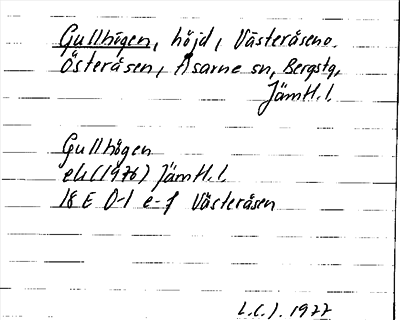 Gullhögen, höjd, Västeråsen o.
Österåsen, Åsarne sn, Bergstg,
Jämtl. l.
Gullhögen
ek (1976) Jämtl. l.
18 E 0-1 e-f Västeråsen
1977